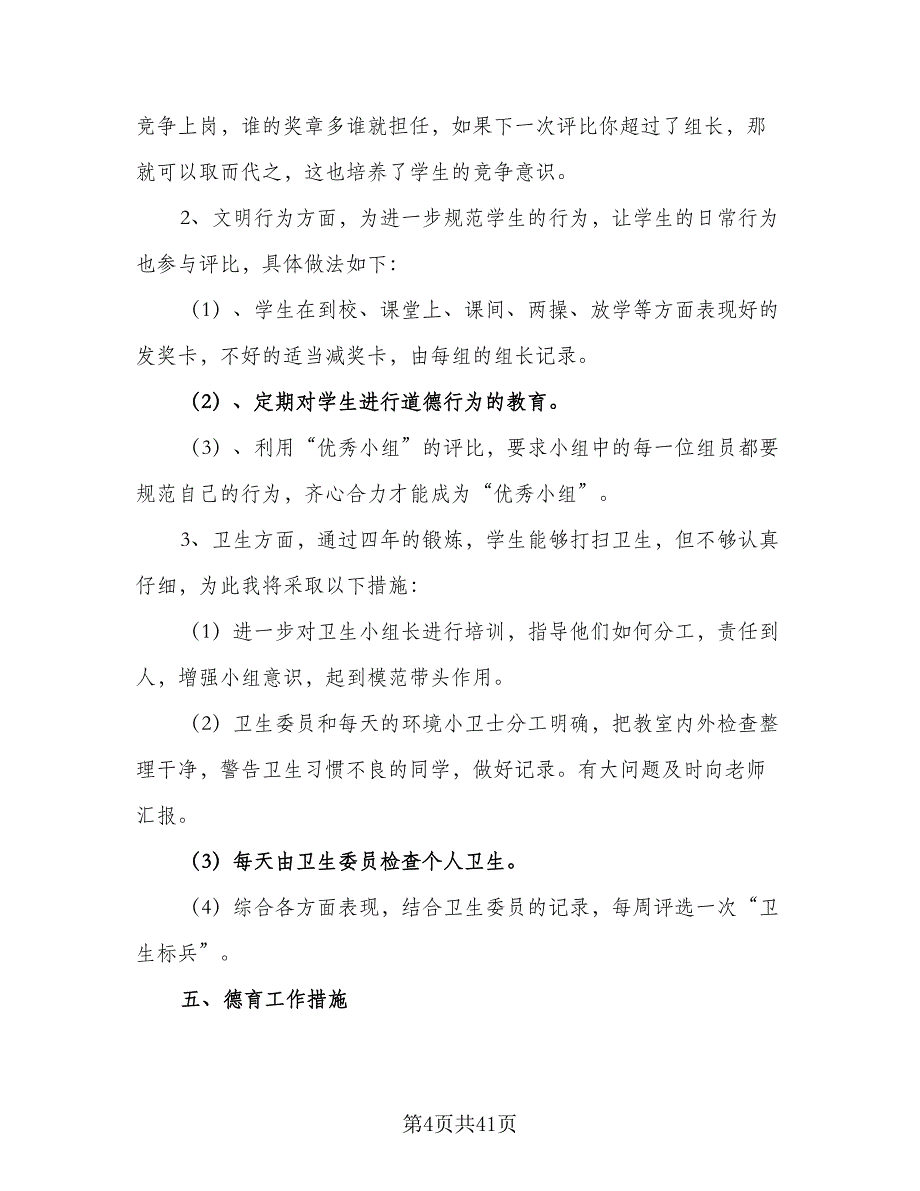 竞争上岗，谁的奖章多谁就担任，如果下一次评比你超过了组长，那
就可以取而代之，这也培养了学生的竞争意识。
2、文明行为方面，为进一步规范学生的行为，让学生的日常行为
也参与评比，具体做法如下：
（1）、学生在到校、课堂上、课间、两操、放学等方面表现好的
发奖卡，不好的适当减奖卡，由每组的组长记录。
（2）、定期对学生进行道德行为的教育。
（3）、利用“优秀小组”的评比，要求小组中的每一位组员都要
规范自己的行为，齐心合力才能成为“优秀小组”。
3、卫生方面，通过四年的锻炼，学生能够打扫卫生，但不够认真
仔细，为此我将采取以下措施：
（1）进一步对卫生小组长进行培训，指导他们如何分工，责任到
人，增强小组意识，起到模范带头作用。
（2）卫生委员和每天的环境小卫士分工明确，把教室内外检查整
理干净，警告卫生习惯不良的同学，做好记录。有大问题及时向老师
汇报。
（3）每天由卫生委员检查个人卫生。
（4）综合各方面表现，结合卫生委员的记录，每周评选一次“卫
生标兵”。
五、德育工作措施
第4页共41页